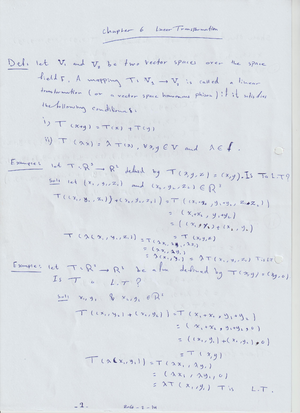 Chapter 6 Linear Transformation
Def: let V₁ and V₂ be two vector spaces over the space
field F. A mapping T: V₁ → V₂ is called a linear
transformation (or a vector space homomorphism) if it satisfies
the following conditions:
i) T(x+y) = T(x) + T(y)
ii) T(λx) = λ T(x), ∀x,y ∈ V and λ ∈ F.
Example: let T: R³ → R² defined by T(x,y,z) = (x,y). Is T a L.T?
Sol: let (x₁,y₁,z₁) and (x₂,y₂,z₂) ∈ R³
T((x₁,y₁,z₁)+(x₂,y₂,z₂)) = T(x₁+x₂, y₁+y₂, z₁+z₂)
= (x₁+x₂, y₁+y₂)
Example: let T: R² → R³ be a defined by T(x,y) = (x,y,0)
Is T = L.T?
Sol: x₁,y₁ & x₂,y₂ ∈ R²
T((x₁,y₁)+(x₂,y₂)) = T(x₁+x₂, y₁+y₂)
= (x₁+x₂, y₁+y₂, 0)
T(λ(x₁,y₁)) = T(λx₁, λy₁)
= (λx₁, λy₁, 0)
= λT(x₁,y₁) T is L.T.
-1-